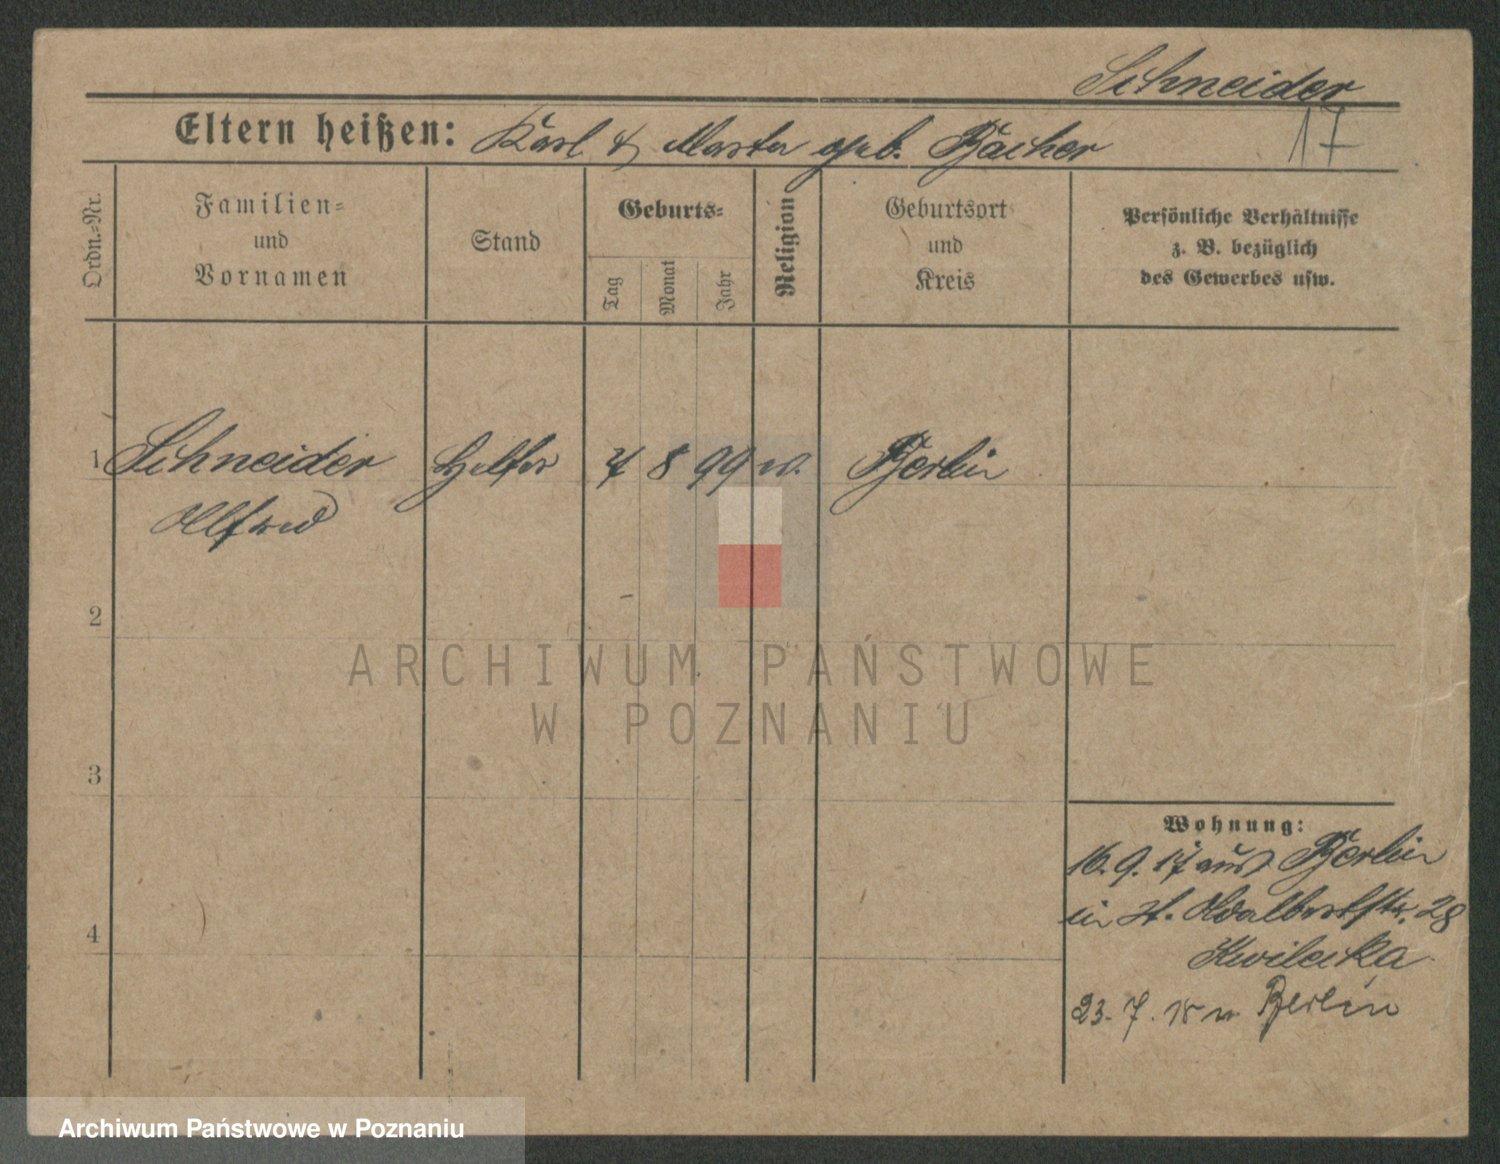 Schneider
17
Eltern heißen: Karl & Marta geb. Bäcker
Ordn.-Nr.
Familien-
und
Vornamen
Stand
Geburts-
Tag
Monat
Jahr
Religion
Geburtsort
und
Kreis
Persönliche Verhältnisse
z. B. bezüglich
des Gewerbes usw.
1 Schneider Helfer 7 8 99 ev. Berlin
Alfred
2
ARCHIWUM PAŃSTWOWE
W POZNANIU
3
4
Wohnung:
16.9.17 aus Berlin
in St. Adalbertstr. 28
Kwilecka
23.7.18 n. Berlin
Archiwum Państwowe w Poznaniu